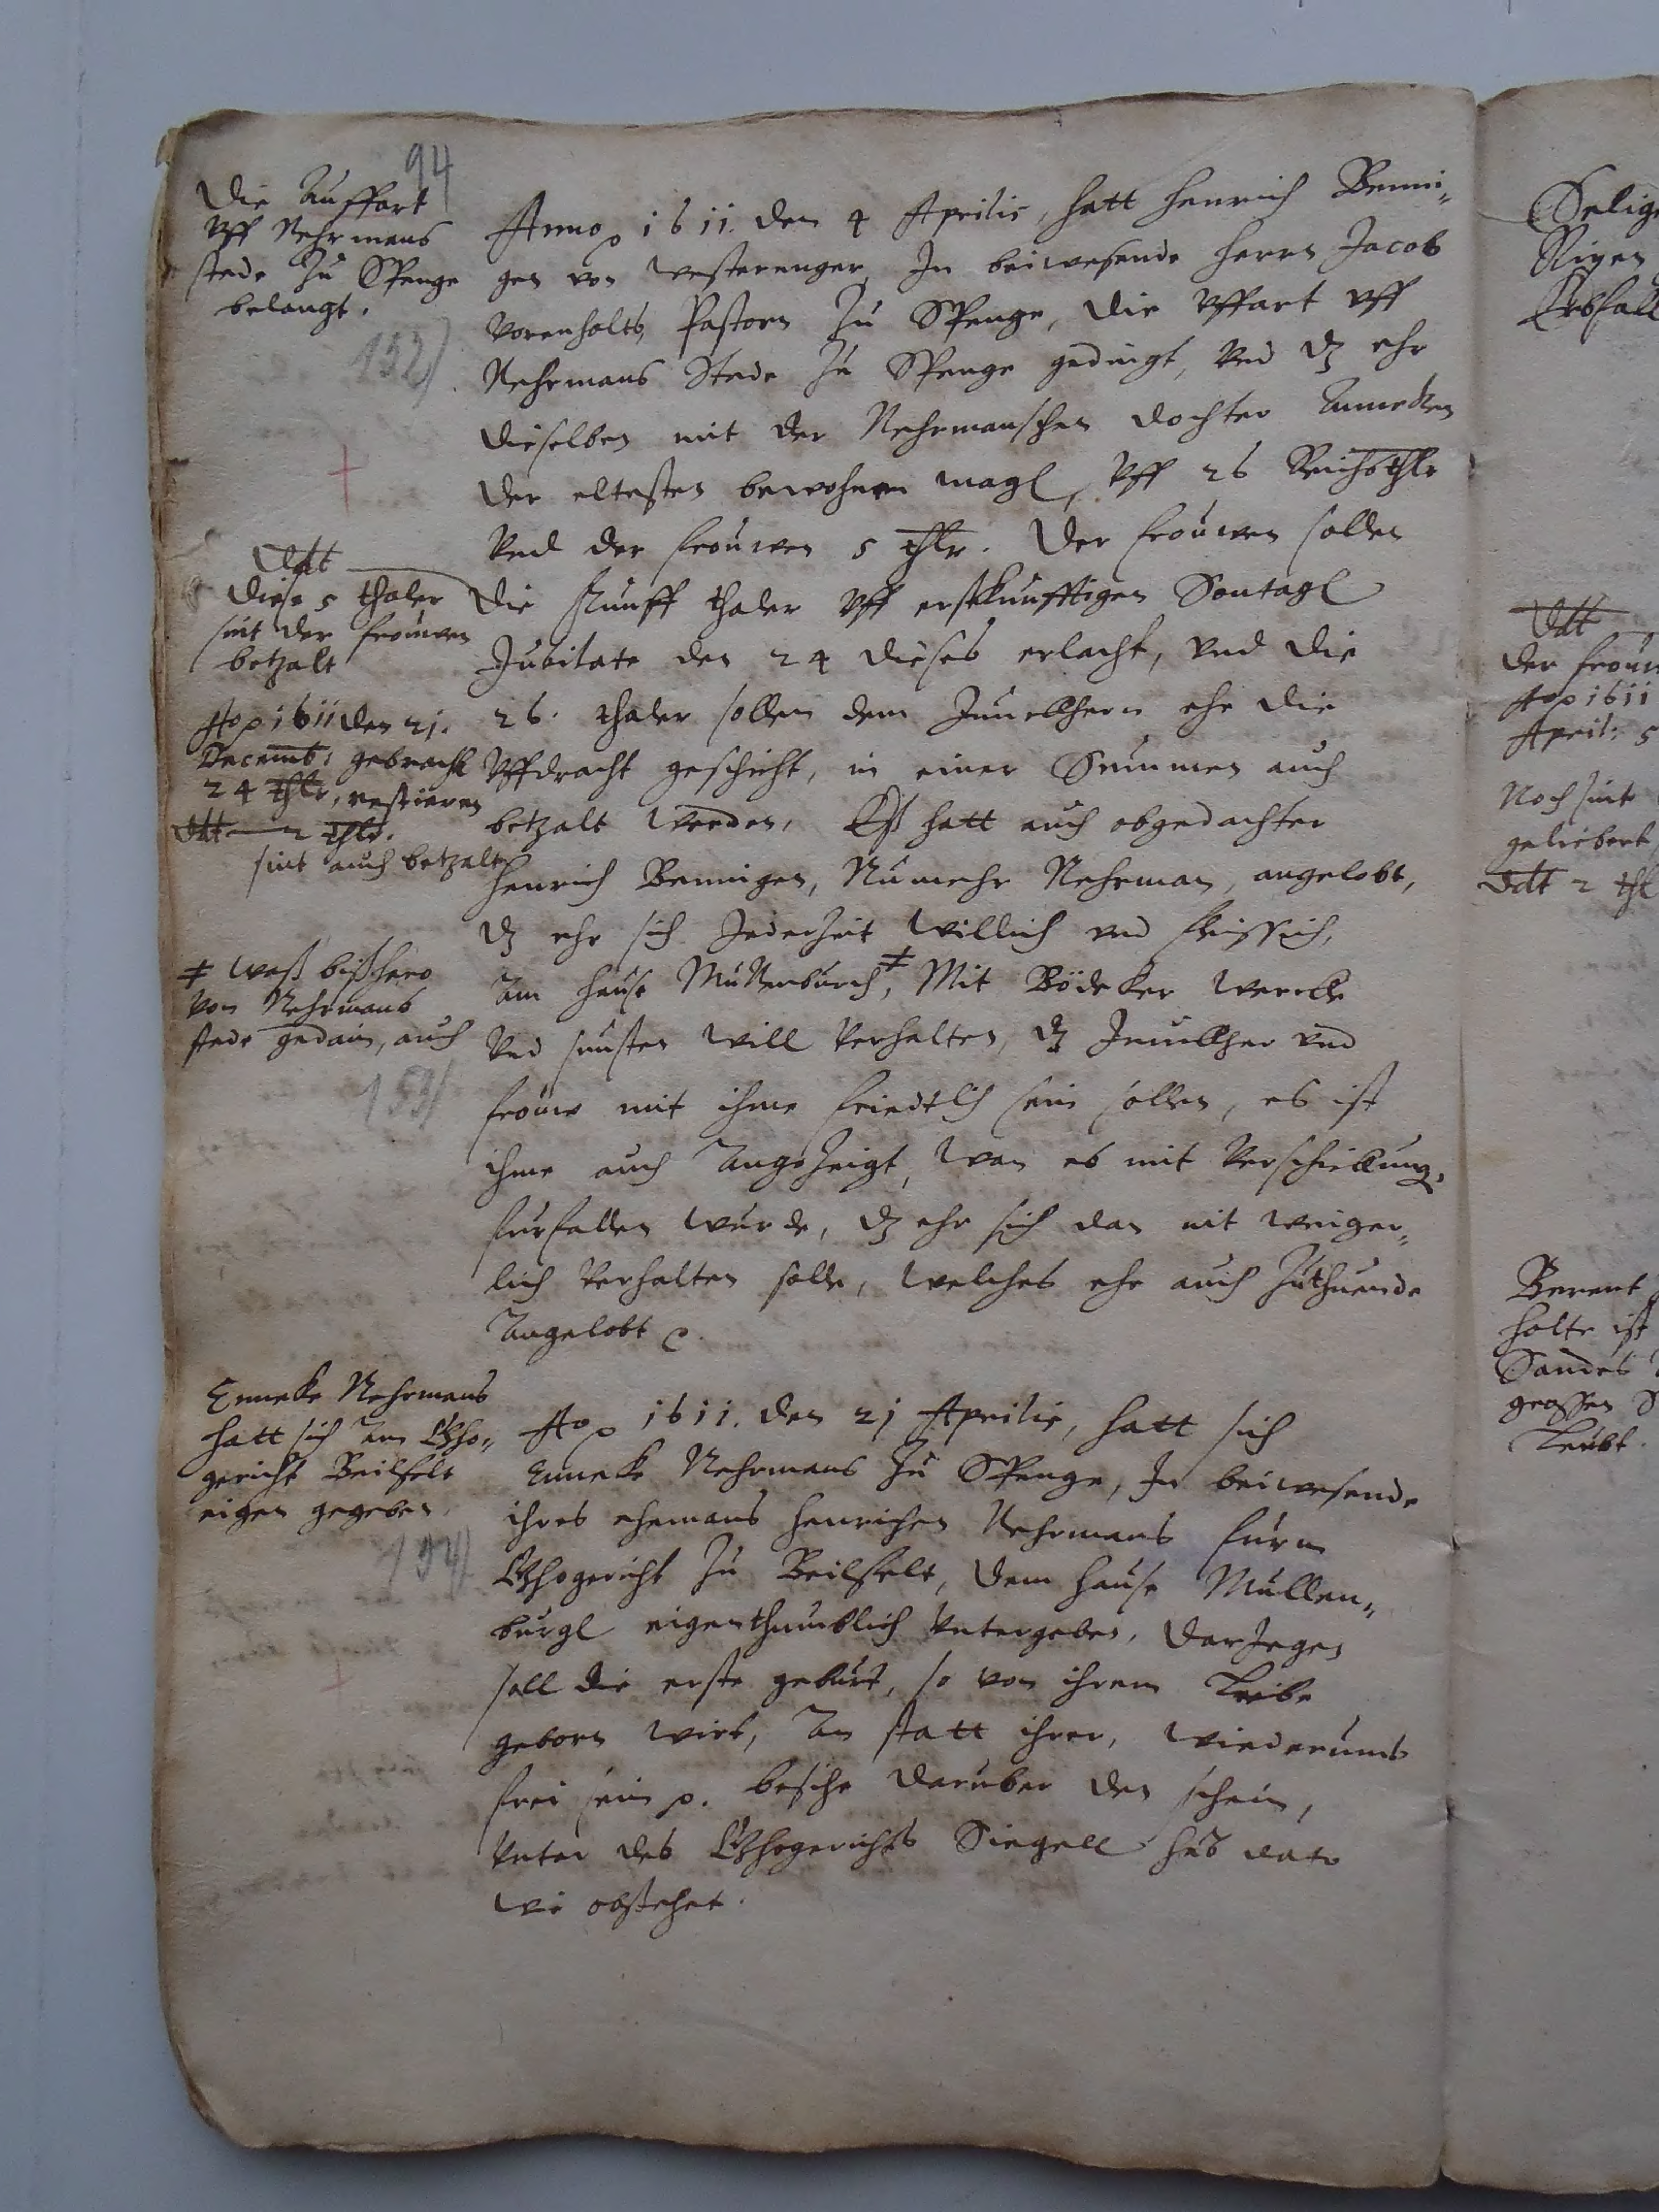 94
Die Auffart
Uff Nehrmans
stede Zu Spenge
belangt.
152)
Anno p 1611. den 4 Aprilis, hatt Henrich Benni„
gen von Westerenger, In beiwesende Herrn Jacob
Vorenholts, Pastorn Zu Spenge, die Uffart uff
Nehrmans Stede Zu Spenge gedingt, Und dz ehr
dieselben mit der Nehrmanschen dochter Anneken
der eltesten bewohnen magh, Uff 26 Reichsthlr
Und der frouwen 5 thlr. Der frouwen sollen
die Funff thaler Uff erstkunfftigen Sontagh
Jubilate den 24 dieses erlacht, und die
26. thaler sollen dem Junckhern ehe die
Uffdracht geschicht, in einer Summen auch
betzalt werden, Eß hatt auch obgedachter
Henrich Benningen, Numehr Nehrman, angelobt,
dz ehr sich Jederzeit willich und fleissich,
Am hause Mullenburch ≠, Mit Bödeker wercke
Und sunsten will Verhalten, dz Junckher und
frouw mit ihme friedtlich sein sollen, es ist
ihme auch Angezeigt, wan es mit Verschickung
furfallen wurde, dz ehr sich dan nit weiger„
lich Verhalten solle, welches ehr auch Zuthuende
Angelobt
Ddt
diese 5 thaler
sint der frouwen
betzalt
Ao p 1611 den 21.
Decemb: gebracht
24 thlr, restieren
Ddt 2 thlr.
sint auch betzalt
≠ waß bißhero
Von Nehrmans
stede gedain, auch
153)
Enneke Nehrmans
hatt sich Am Gho„
gericht Beilfelt
eigen gegeben
154)
Ao p 1611. den 21 Aprilis, hatt sich
Enneke Nehrmans Zu Spenge, In beiwesende
ihres ehemans Henrichen Nehrmans furm
Ghogericht Zu Beilfelt, dem hause Mullen„
burgh eigenthumblich Untergeben, darJegen
soll die erste geburt, so von ihrem Leibe
geborn wirt, An statt ihrer, wiederumb
frei sein p. besihe daruber den schein,
Unter des Ghogerichts Siegell hab dato
wi obstehet.
Selig
Ao p 1611
April: 5
Noch sint
geliebert
Ddt 2 thl
Berent
holte ist
grossen